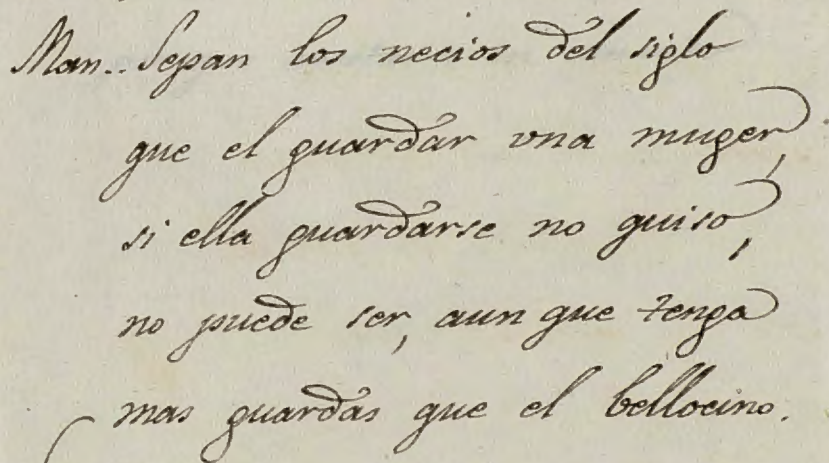 Man.. Sepan los necios del siglo
que el guardar vna muger,
si ella guardarse no quiso,
no puede ser, aun que tenga
mas guardas que el bellocino.